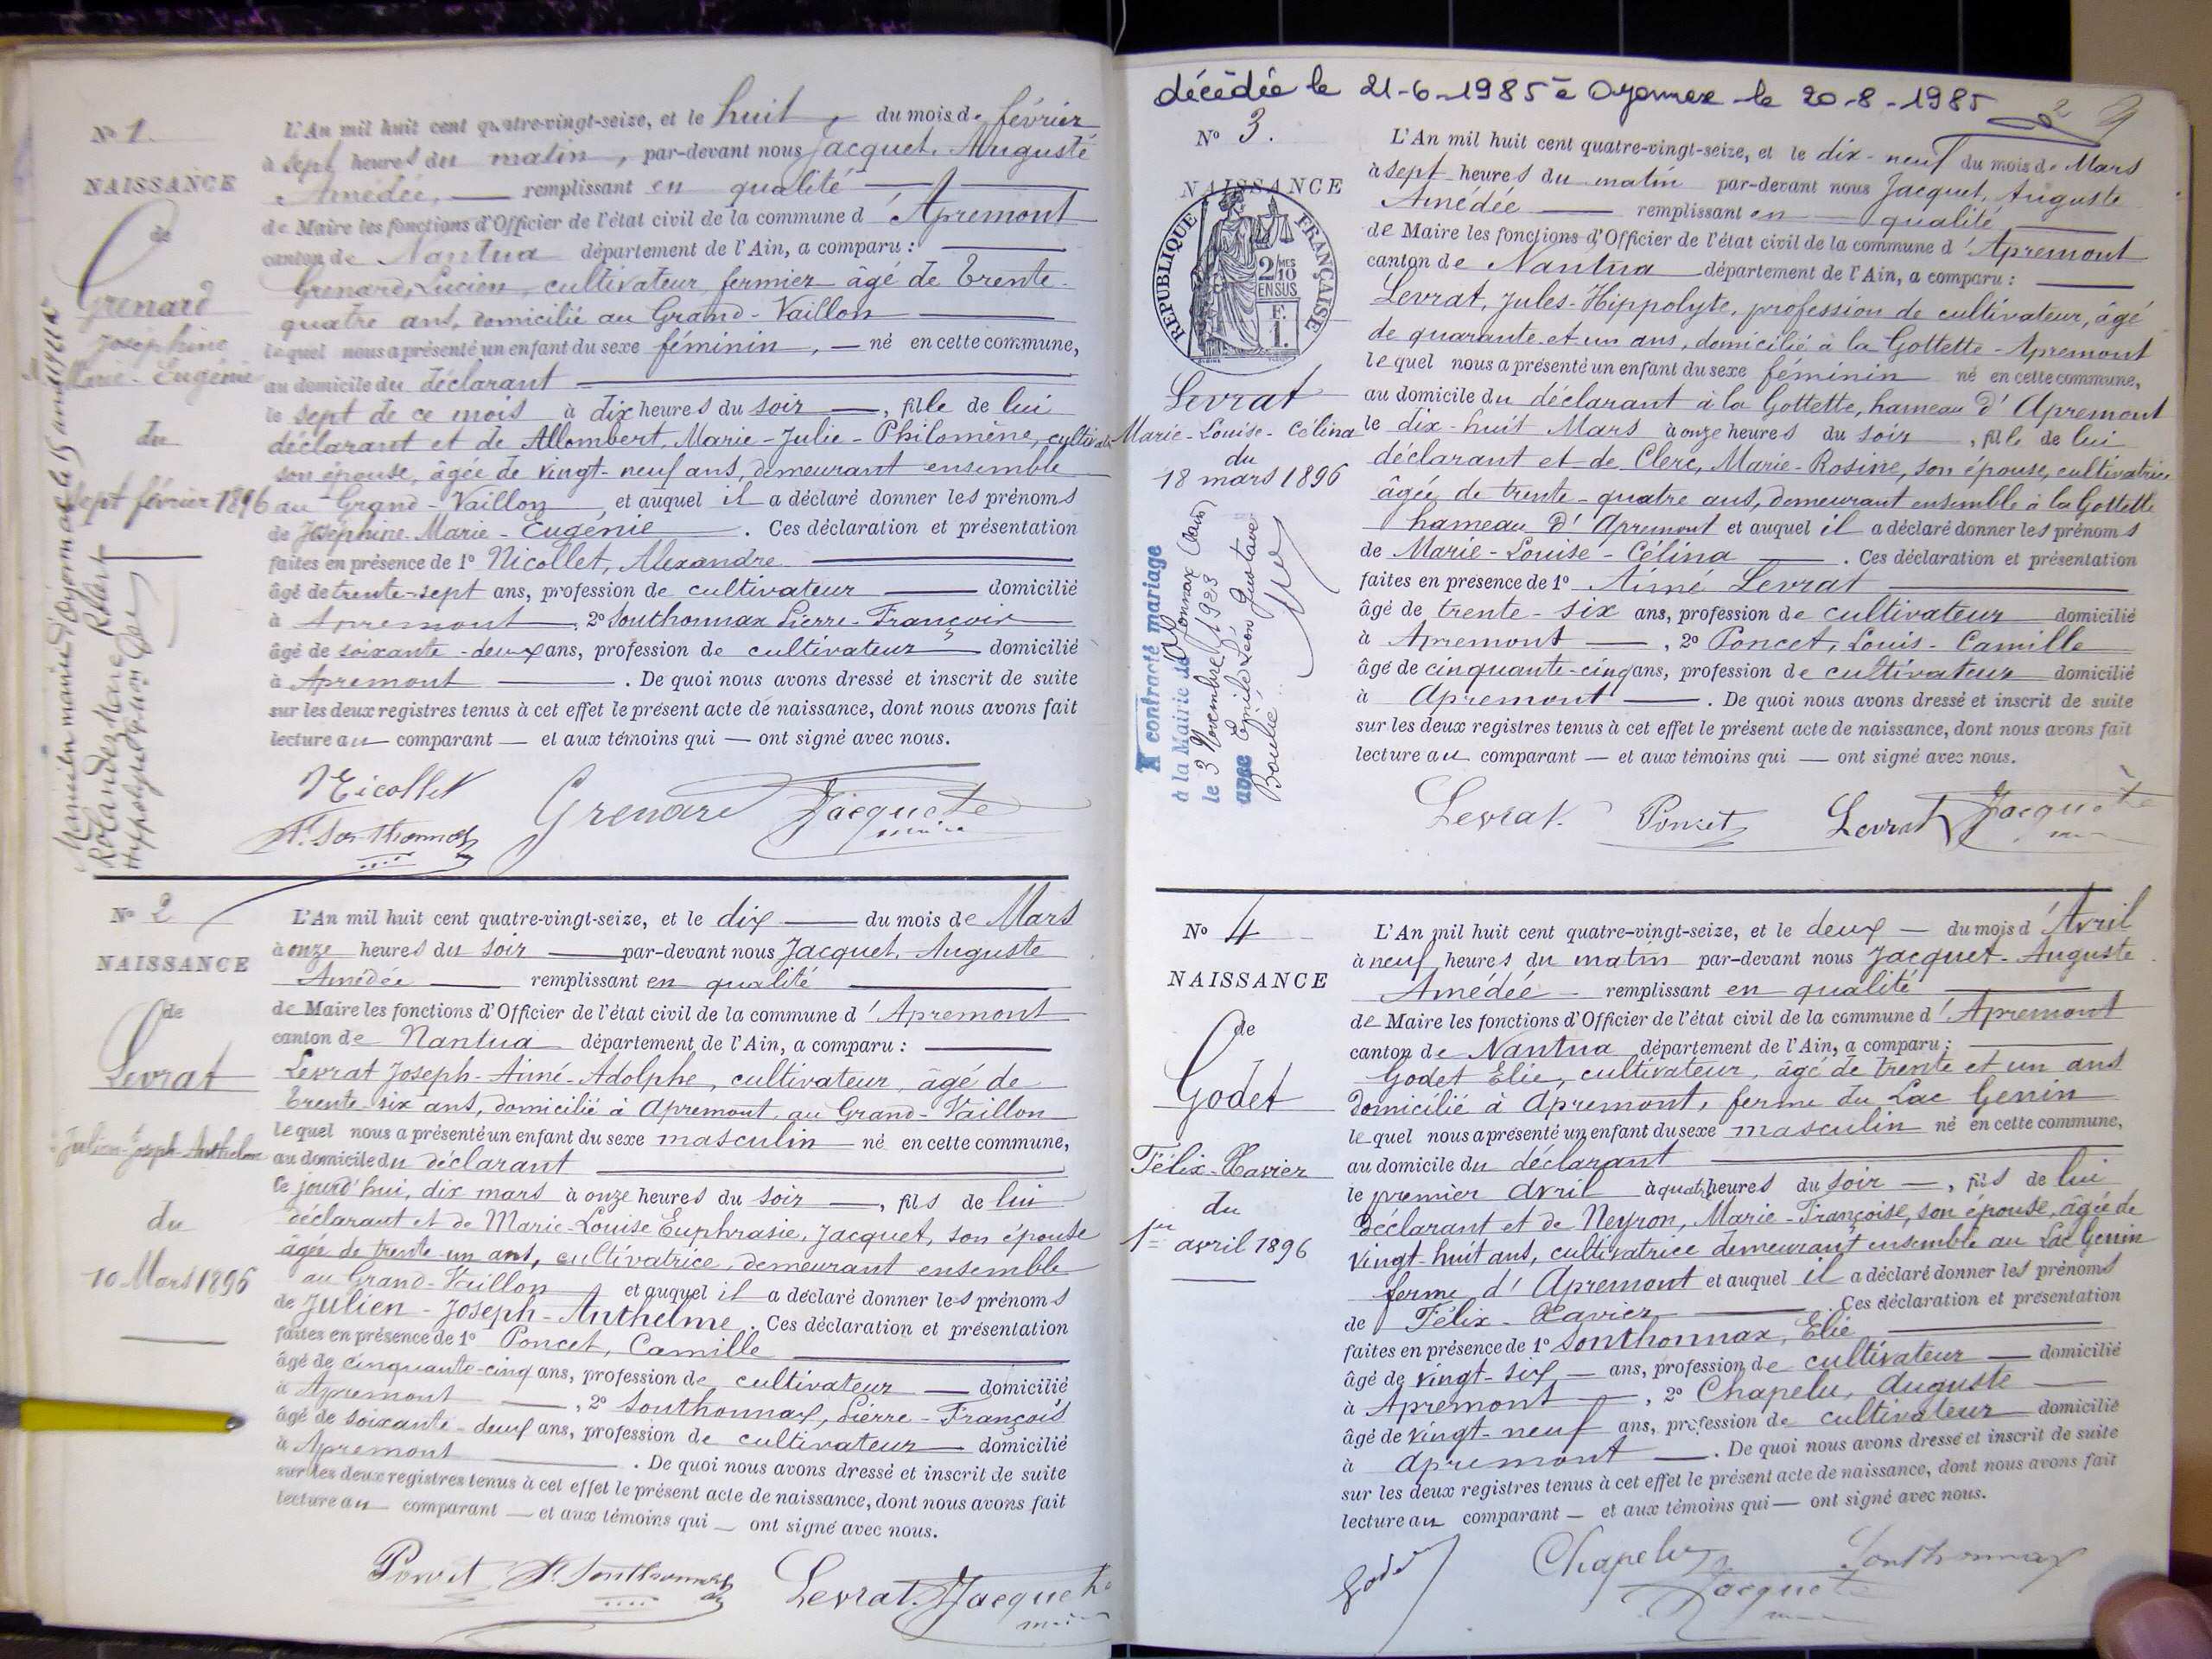 N° 1.
NAISSANCE
de
Grenard
Joséphine
Marie-Eugénie
du
sept février 1896
L'An mil huit cent quatre-vingt-seize, et le huit du mois de février
à sept heures du matin, par-devant nous Jacquet, Auguste
Amédée, remplissant en qualité
de Maire les fonctions d'Officier de l'état civil de la commune d'Apremont
canton de Nantua département de l'Ain, a comparu :
Grenard, Lucien, cultivateur fermier âgé de trente-
quatre ans, domicilié au Grand-Vaillon
lequel nous a présenté un enfant du sexe féminin, né en cette commune,
au domicile du déclarant
le sept de ce mois à dix heures du soir, fille de lui
déclarant et de Allombert, Marie-Julie-Philomène,
son épouse, âgée de vingt-neuf ans, demeurant ensemble
au Grand-Vaillon et auquel il a déclaré donner les prénoms
de Joséphine-Marie-Eugénie. Ces déclaration et présentation
faites en présence de 1° Nicollet, Alexandre
âgé de trente-sept ans, profession de cultivateur domicilié
à Apremont, 2° Southonnax Pierre-François
âgé de soixante-deux ans, profession de cultivateur domicilié
à Apremont. De quoi nous avons dressé et inscrit de suite
sur les deux registres tenus à cet effet le présent acte de naissance, dont nous avons fait
lecture au comparant — et aux témoins qui — ont signé avec nous.
Nicollet
Grenard
Jacquet
N° 2
NAISSANCE
de
Levrat
Julien-Joseph-Anthelme
du
10 Mars 1896
L'An mil huit cent quatre-vingt-seize, et le dix du mois de Mars
à onze heures du soir par-devant nous Jacquet, Auguste
Amédée remplissant en qualité
de Maire les fonctions d'Officier de l'état civil de la commune d'Apremont
canton de Nantua département de l'Ain, a comparu :
Levrat Joseph-Aimé-Adolphe, cultivateur, âgé de
trente-six ans, domicilié à Apremont, au Grand-Vaillon
lequel nous a présenté un enfant du sexe masculin né en cette commune,
au domicile du déclarant
ce jourd'hui, dix mars à onze heures du soir, fils de lui
déclarant et de Marie-Louise Euphrasie, Jacquet, son épouse
âgée de trente-un ans, cultivatrice, demeurant ensemble
au Grand-Vaillon et auquel il a déclaré donner les prénoms
de Julien-Joseph-Anthelme. Ces déclaration et présentation
faites en présence de 1° Poncet, Camille
âgé de cinquante-cinq ans, profession de cultivateur — domicilié
à Apremont, 2° Southonnax, Pierre-François
âgé de soixante-deux ans, profession de cultivateur domicilié
à Apremont. De quoi nous avons dressé et inscrit de suite
sur les deux registres tenus à cet effet le présent acte de naissance, dont nous avons fait
lecture au comparant — et aux témoins qui — ont signé avec nous.
Poncet
Levrat
Jacquet
décédée le 21-6-1985 à Oyonnax le 20-8-1985
N° 3.
NAISSANCE
REPUBLIQUE FRANÇAISE
2/10 MES
EN SUS
F.
1.
Levrat
Marie-Louise-Célina
du
18 mars 1896
A contracté mariage
à la Mairie de Oyonnax (Ain)
le 3 Novembre 1923
avec Emile Léon Gustave
L'An mil huit cent quatre-vingt-seize, et le dix-neuf du mois de Mars
à sept heures du matin par-devant nous Jacquet, Auguste
Amédée remplissant en qualité
de Maire les fonctions d'Officier de l'état civil de la commune d'Apremont
canton de Nantua département de l'Ain, a comparu :
Levrat, Jules-Hippolyte, profession de cultivateur, âgé
de quarante et un ans, domicilié à la Gottette-Apremont
lequel nous a présenté un enfant du sexe féminin né en cette commune,
au domicile du déclarant à la Gottette, hameau d'Apremont
le dix-huit Mars à onze heures du soir, fille de lui
déclarant et de Clerc, Marie-Rosine, son épouse, cultivatrice
âgée de trente-quatre ans, demeurant ensemble à la Gottette
hameau d'Apremont et auquel il a déclaré donner les prénoms
de Marie-Louise-Célina. Ces déclaration et présentation
faites en présence de 1° Aimé Levrat
âgé de trente-six ans, profession de cultivateur domicilié
à Apremont, 2° Poncet, Louis-Camille
âgé de cinquante-cinq ans, profession de cultivateur domicilié
à Apremont. De quoi nous avons dressé et inscrit de suite
sur les deux registres tenus à cet effet le présent acte de naissance, dont nous avons fait
lecture au comparant — et aux témoins qui — ont signé avec nous.
Levrat
Poncet
Levrat
Jacquet
N° 4
NAISSANCE
de
Godet
Félix-Xavier
du
1er avril 1896
L'An mil huit cent quatre-vingt-seize, et le deux — du mois d'Avril
à neuf heures du matin par-devant nous Jacquet-Auguste
Amédée — remplissant en qualité
de Maire les fonctions d'Officier de l'état civil de la commune d'Apremont
canton de Nantua département de l'Ain, a comparu :
Godet Elie, cultivateur, âgé de trente et un ans
domicilié à Apremont, ferme du Lac Genin
lequel nous a présenté un enfant du sexe masculin né en cette commune,
au domicile du déclarant
le premier Avril à quatre heures du soir —, fils de lui
déclarant et de Neyron, Marie-Françoise, son épouse, âgée de
vingt-huit ans, cultivatrice demeurant ensemble au Lac Genin
ferme d'Apremont et auquel il a déclaré donner les prénoms
de Félix-Xavier. Ces déclaration et présentation
faites en présence de 1° Southonnax, Elie
âgé de vingt-six — ans, profession de cultivateur — domicilié
à Apremont, 2° Chapelu, Auguste
âgé de vingt-neuf ans, profession de cultivateur domicilié
à Apremont. De quoi nous avons dressé et inscrit de suite
sur les deux registres tenus à cet effet le présent acte de naissance, dont nous avons fait
lecture au comparant — et aux témoins qui — ont signé avec nous.
Godet
Chapelu
Southonnax
Jacquet